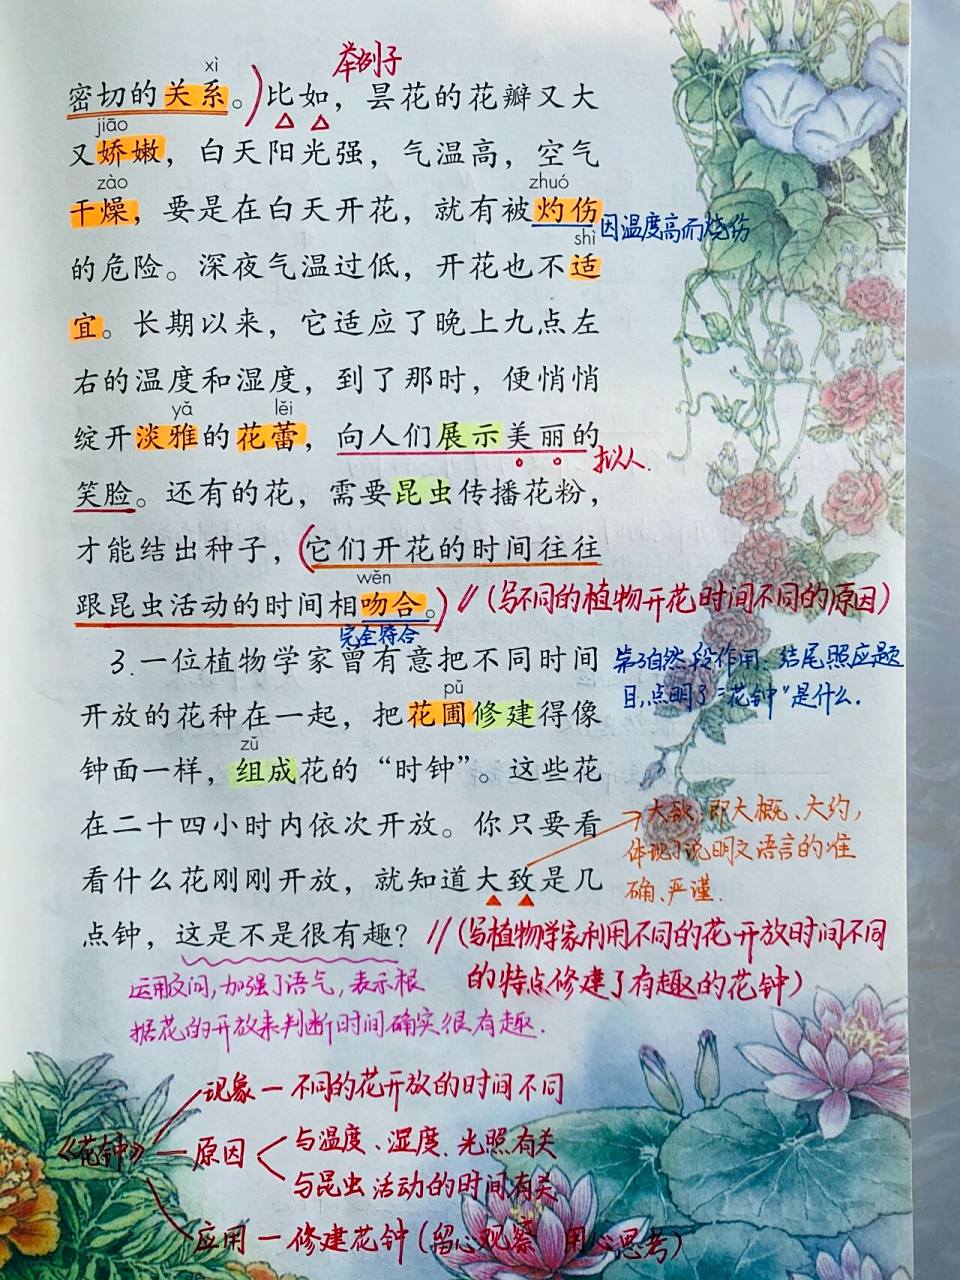 举例子
xì
密切的关系。）比如，昙花的花瓣又大
jiāo
又娇嫩，白天阳光强，气温高，空气
zào zhuó
干燥，要是在白天开花，就有被灼伤
因温度高而烧伤
shì
的危险。深夜气温过低，开花也不适
宜。长期以来，它适应了晚上九点左
右的温度和湿度，到了那时，便悄悄
yǎ lěi
绽开淡雅的花蕾，向人们展示美丽的
拟人.
笑脸。还有的花，需要昆虫传播花粉，
才能结出种子，（它们开花的时间往往
wěn
跟昆虫活动的时间相吻合。）//（写不同的植物开花时间不同的原因）
完全符合
3.一位植物学家曾有意把不同时间
第3自然段作用：结尾照应题
目,点明了“花钟”是什么.
pǔ
开放的花种在一起，把花圃修建得像
zǔ
钟面一样，组成花的“时钟”。这些花
在二十四小时内依次开放。你只要看
大致：即大概、大约，
体现了说明文语言的准
确、严谨.
看什么花刚刚开放，就知道大致是几
点钟，这是不是很有趣？//（写植物学家利用不同的花开放时间不同
的特点修建了有趣的花钟）
运用反问,加强了语气,表示根
据花的开放来判断时间确实很有趣.
《花钟》
现象－不同的花开放的时间不同
原因
与温度、湿度.光照有关
与昆虫活动的时间有关
应用－修建花钟（留心观察 用心思考）